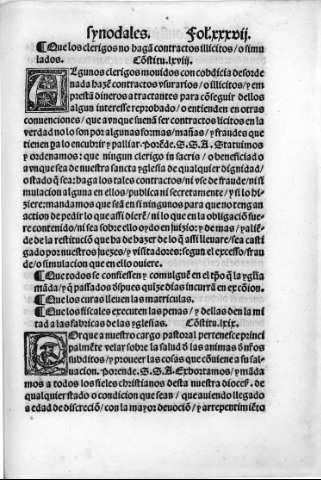 synodales. Fol. xxxvij.
¶ Que los clerigos no hagā contractos illicitos / o simu
lados. Cōstitu. lxviij.
ALgunos clerigos mouidos con cobdicia desorde
nada hazē contractos vsurarios / o illicitos / y em
prestā dineros a tractantes para cōseguir dellos
algun interesse reprobado / o entienden en otras
conuenciones / que avnque suenā ser contractos licitos en la
verdad no lo son por algunas formas / mañas / y fraudes que
tienen pa lo encubrir y palliar. Porēde. S. S. A. Statuimos
y ordenamos: que ningun clerigo in sacris / o beneficiado
avnque sea de nuestra sancta yglesia de qualquier dignidad /
o estado q̄ sea: haga los tales contractos / ni vse de fraude / ni si
mulacion alguna en ellos / publica ni secretamente / y si lo hi
ziere: mandamos que seā en si ningunos para que no tengan
action de pedir lo que assi dierē / ni lo que en la obligaciō fue
re contenido / ni sea sobre ello oydo en juyzio: y de mas / y allē
de de la restituciō que ha de hazer de lo q̄ assi lleuare / sea casti
gado por nuestros juezes / y visitadores: segun el excesso / frau
de / o simulacion que en ello ouiere.
¶ Que todos se confiessen y comulguē en el tpō q̄ la yglīa
māda / y q̄ passados despues quīze dias incurrā en excōion.
¶ Que los curas lleuen las matriculas.
¶ Que los fiscales executen las penas / y dellas den la mi
tad a las fabricas de las yglesias. Cōstitu. lxix.
POrque a nuestro cargo pastoral pertenesce princi
palmēte velar sobre la salud d̄ las animas d̄ nr̄os
subditos / y proueer las cosas que cōuiene a su sal
uacion. Porende. S. S. A. Exhortamos / y māda
mos a todos los fieles christianos desta nuestra dioces. de
qualquier stado o condicion que sean / que auiendo llegado
a edad de discreciō / con la mayor deuociō / y arrepentimiēto